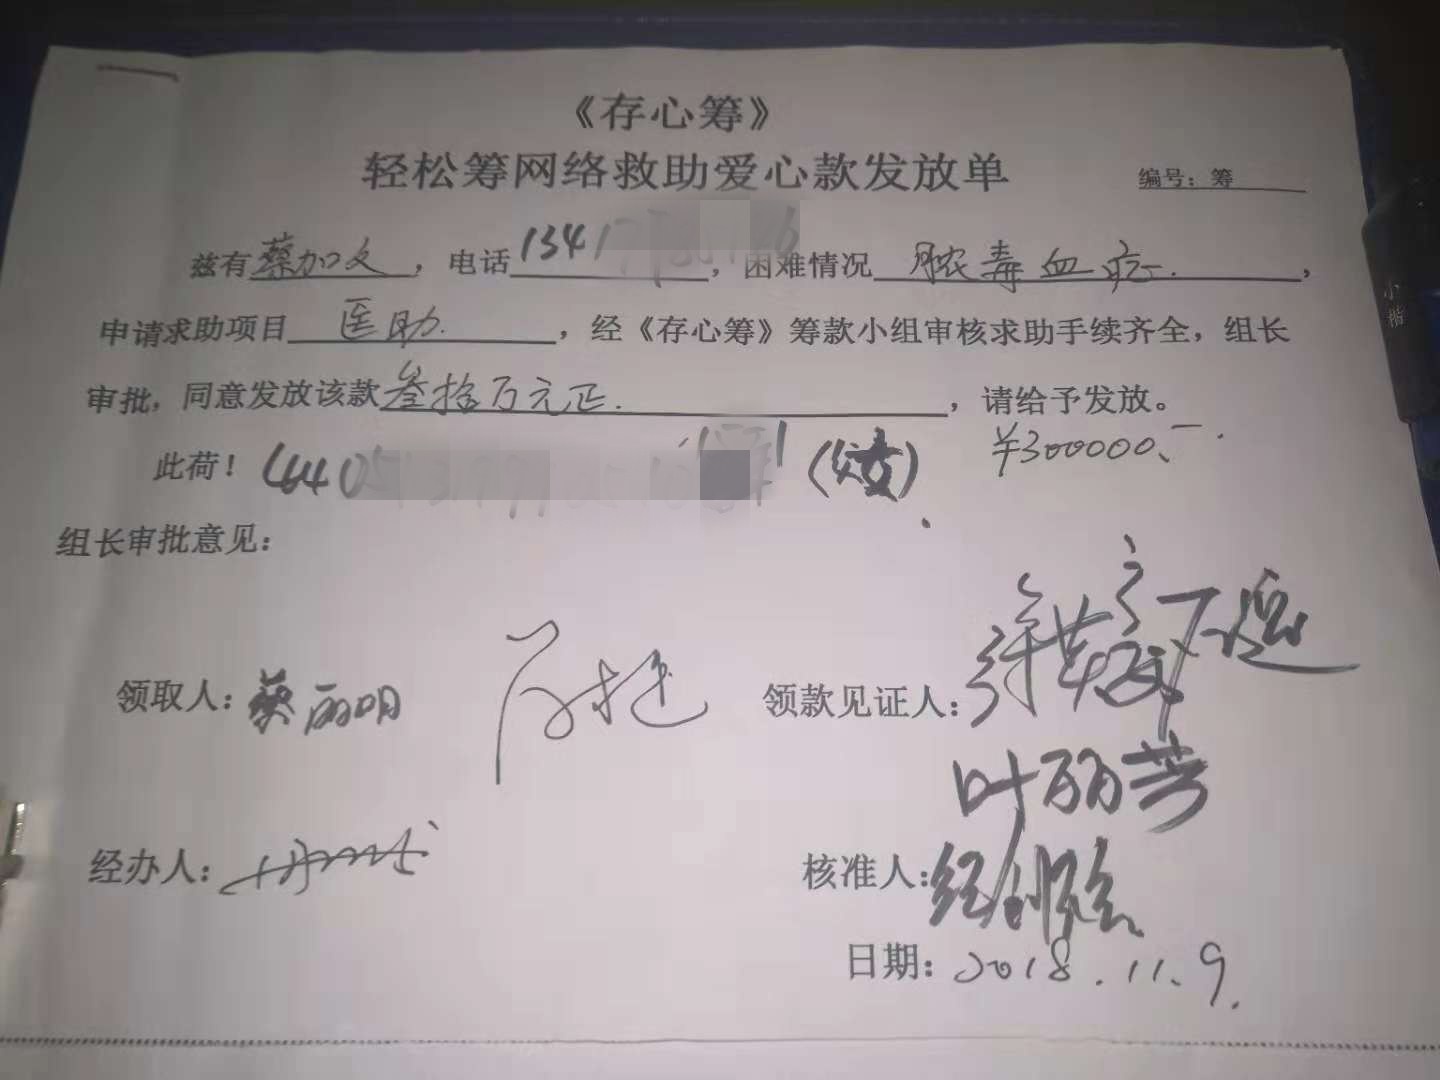 《存心筹》
轻松筹网络救助爱心款发放单
编号：筹
兹有蔡加文，电话1341，困难情况脓毒血症.，
申请求助项目医助.，经《存心筹》筹款小组审核求助手续齐全，组长
审批，同意发放该款叁拾万元正.，请给予发放。
¥300000.
此荷！
组长审批意见：
领取人：蔡丽明
领款见证人：
叶丽芳
经办人：
核准人：
日期：2018.11.9.
小楷